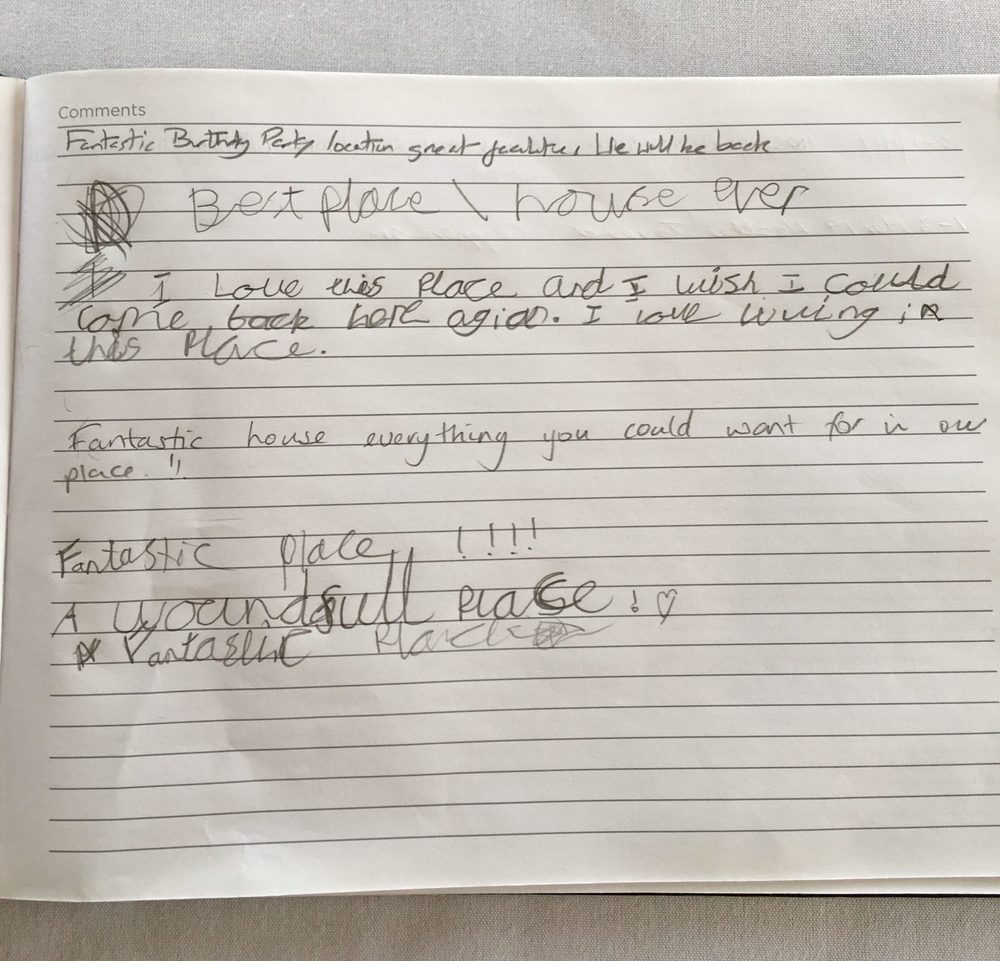 Comments
Fantastic Birthday Party location great facilities We will be back
Best place \ house ever
I Love this Place and I wish I could
come back here agian. I love living in
this Place.
Fantastic house everything you could want for in our
place. !!
Fantastic place !!!!
A woundfull place! ♡
Fantastic